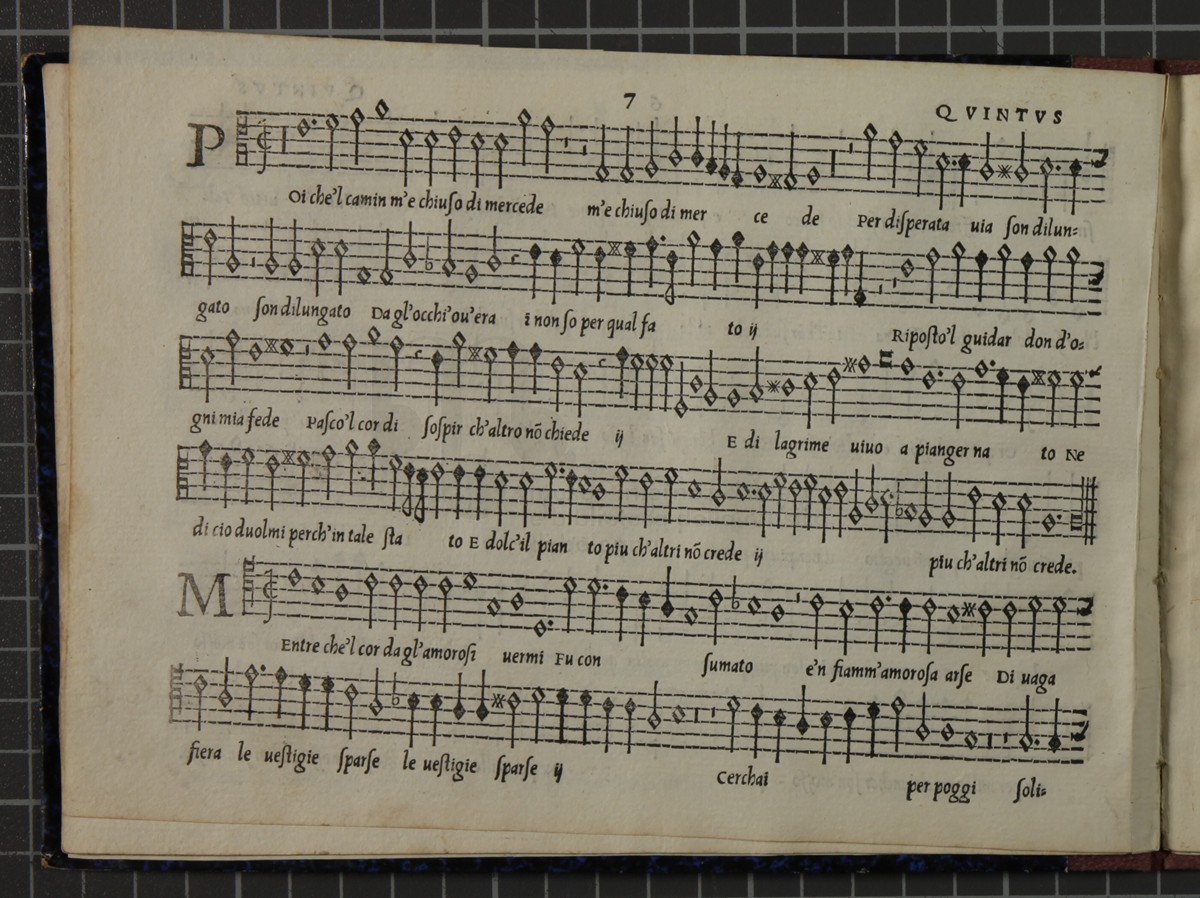 7 QVINTVS
P
Oi che'l camin m'e chiuſo di mercede m'e chiuſo di mer ce de Per diſperata uia ſon dilun=
gato ſon dilungato Da gl'occhi'ou'era i non ſo per qual fa to ij Ripoſto'l guidar don d'o=
gni mia fede Paſco'l cor di ſoſpir ch'altro nō chiede ij E di lagrime uiuo a pianger na to Ne
di cio duolmi perch'in tale ſta to E dolc'il pian to piu ch'altri nō crede ij piu ch'altri nō crede.
M
Entre che'l cor da gl'amoroſi uermi Fu con ſumato e'n fiamm'amoroſa arſe Di uaga
fiera le ueſtigie ſparſe le ueſtigie ſparſe ij Cerchai per poggi ſoli=